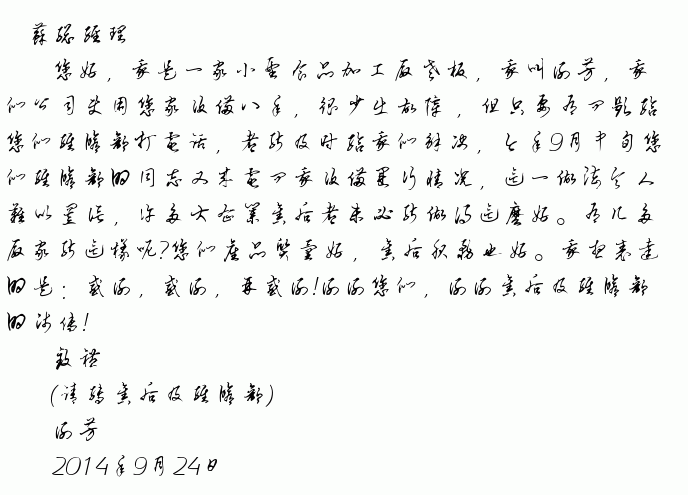 苏总经理
您好，我是一家小型食品加工厂老板，我叫谢芳，我
们公司使用您家设备八年，很少生故障，但只要有问题给
您们经瞻部打电话，都能及时给我们解决，今年9月中旬您
们经瞻部的同志又来电问我设备运行情况，这一做法令人
难以置信，许多大企业售后都未必能做得这麽好。有几多
厂家能这样呢?您们产品质量好，售后服务也好。我想表达
的是：感谢，感谢，再感谢!谢谢您们，谢谢售后及经瞻部
的师傅!
致礼
(请转售后及经瞻部)
谢芳
2014年9月24日